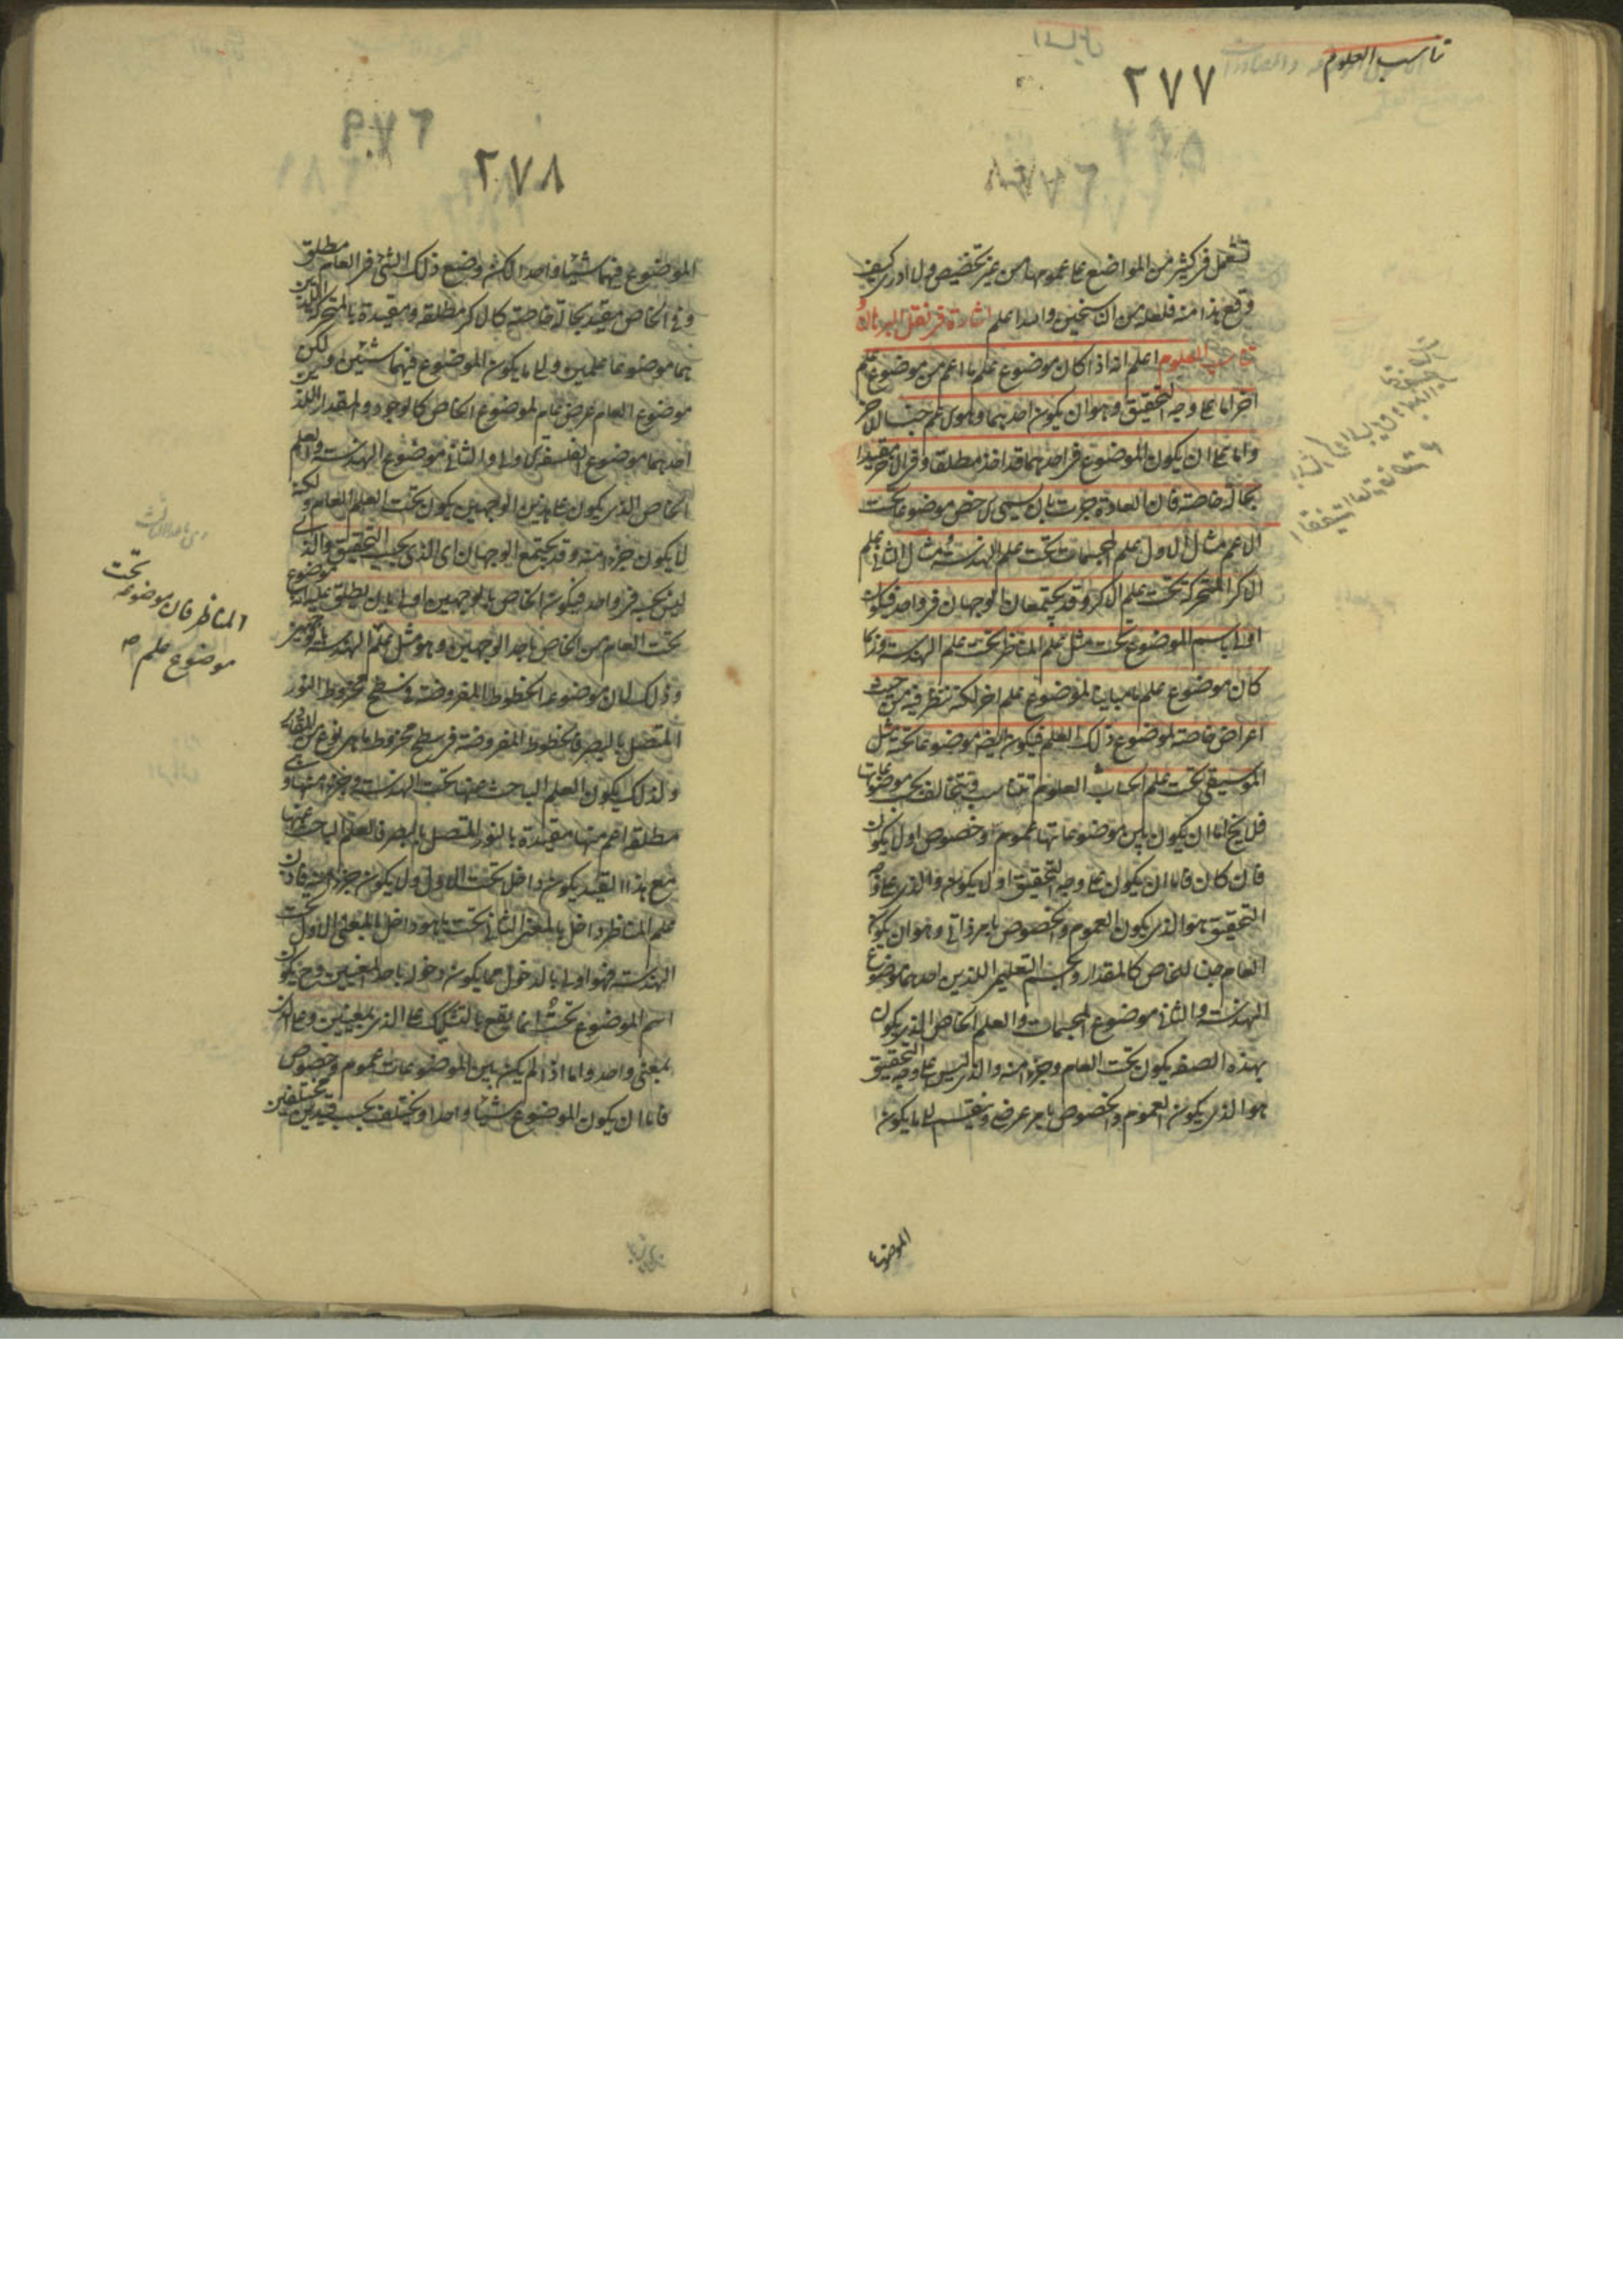 تناسب العلوم
٢٧٧
تستعمل فى كثير من المواضع على عمومها من غير تخصيص ولا ادرى كيف
وقع هذا منه فلعله من الناسخين والله اعلم اشارة فى نقل البرهان و
تناسب العلوم اعلم انه اذا كان موضوع علم ما اعم من موضوع علم
آخر اما على وجه التحقيق وهو ان يكون احدهما وهو الاعم جنسا للآخر
واما على ان يكون الموضوع فى احدهما قد اخذ مطلقا وفى الآخر مقيدا
بحالة خاصة فان العادة جرت بان يسمى الاخص موضوعا تحت
الاعم مثال الاول علم المجسمات تحت علم الهندسة مثال الثانى علم
الاكر المتحركة تحت علم الاكر وقد يجتمعان الوجهان فى واحد فيكون
اولى باسم الموضوع تحت مثل علم المناظر تحت علم الهندسة وربما
كان موضوع علم ما مباينا لموضوع علم آخر لكنه ينظر فيه من حيث
اعراض خاصة لموضوع ذلك العلم فيكون ايضا موضوعا تحته مثل
الموسيقى تحت علم الحساب العلوم تتناسب وتتخالف بحسب موضوعاتها
فلا يخلو اما ان يكون بين موضوعاتها عموم وخصوص او لا يكون
فان كان فاما ان يكون على وجه التحقيق او لا يكون والذى على وجه
التحقيق هو الذى يكون العموم والخصوص بامر ذاتى وهو ان يكون
العام جنسا للخاص كالمقدار والجسم التعليمى اللذين احدهما موضوع
الهندسة والثانى موضوع المجسمات والعلم الخاص الذى يكون
بهذه الصفة يكون تحت العام وجزءا منه والذى ليس على وجه التحقيق
هو الذى يكون العموم والخصوص بامر عرضى وينقسم الى ما يكون
الموضوع
٢٧٨
الموضوع فيهما شيئا واحدا لكن وضع ذلك الشئ فى العام مطلق
وفى الخاص مقيد بحالة خاصة كالاكر مطلقة ومقيدة بالمتحركة اللذين
هما موضوعا علمين والى ما يكون الموضوع فيهما شيئين ولكن
موضوع العام عرض عام لموضوع الخاص كالوجود والمقدار اللذين
احدهما موضوع الفلسفة الاولى والثانى موضوع الهندسة والعلم
الخاص الذى يكون على هذين الوجهين يكون تحت العلم العام ولكنه
لا يكون جزءا منه وقد يجتمع الوجهان اى الذى بحسب التحقيق والذى
ليس بحسبه فى واحد فيكون الخاص بالوجهين اولى بان يطلق عليه انه موضوع
تحت العام من الخاص باحد الوجهين وهو مثل علم الهندسة
وذلك لان موضوعه الخطوط المفروضة فى سطح مخروط النور
المتصل بالبصر فالخطوط المفروضة فى سطح مخروط ما هى نوع من المقادير
ولذلك يكون العلم الباحث عنها تحت الهندسة وجزءا منها
مطلقا اعم منها مقيدة بالنور المتصل بالبصر فالعلم الباحث عنها
مع هذا القيد يكون داخلا تحت الاول ولا يكون جزءا منه فاذن
علم المناظر داخل بالمعنى الثانى تحت ما هو داخل بالمعنى الاول تحت
الهندسة فهو اولى بالدخول مما يكون دخوله باحد المعنيين وح يكون
اسم الموضوع تحت انما يقع بالتشكيك على الذى بمعنيين وعلى الذى
بمعنى واحد واما اذا لم يكن بين الموضوعات عموم وخصوص
فاما ان يكون الموضوع شيئا واحدا ويختلف بحسب قيدين مختلفين
المناظر فان موضوعه تحت
موضوع علم